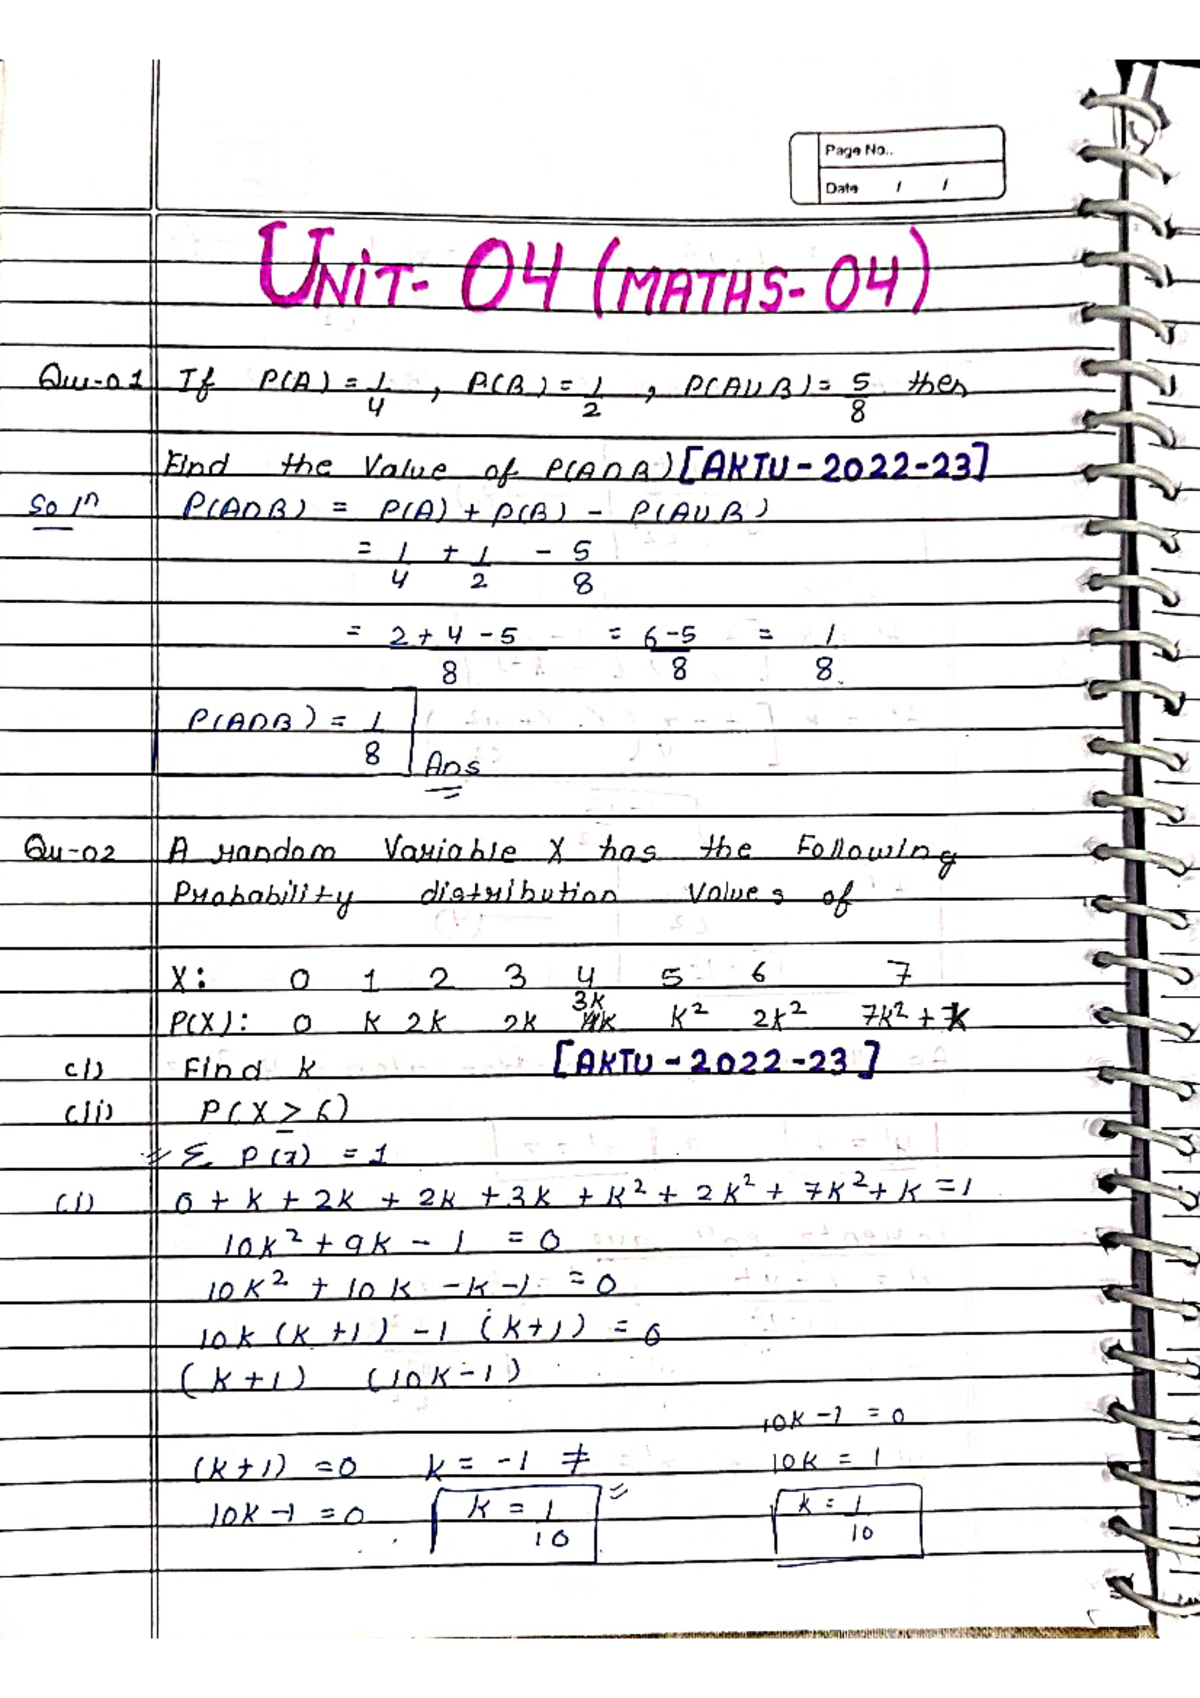 Page No..
Date / /
UNIT- 04 (MATHS-04)
Qu-01 If P(A) = 1/4 , P(B) = 1/2 , P(A∪B) = 5/8 then
Find the Value of P(A∩B) [AKTU - 2022-23]
Solⁿ P(A∩B) = P(A) + P(B) - P(A∪B)
= 1/4 + 1/2 - 5/8
= 2+4-5/8 = 6-5/8 = 1/8
P(A∩B) = 1/8 Ans
Qu-02 A random Variable X has the Following
Probability distribution Values of
X: 0 1 2 3 4 5 6 7
P(X): 0 K 2K 2K 3K K² 2K² 7K² + K
(i) Find K [AKTU - 2022-23]
(ii) P(X ≥ 6)
Σ P(x) = 1
(i) 0 + K + 2K + 2K + 3K + K² + 2K² + 7K² + K = 1
10K² + 9K - 1 = 0
10K² + 10K - K - 1 = 0
10K (K+1) - 1 (K+1) = 0
(K+1) (10K-1)
10K - 1 = 0
(K+1) = 0 K = -1 ≠ 10K = 1
10K - 1 = 0 K = 1/10 K = 1/10